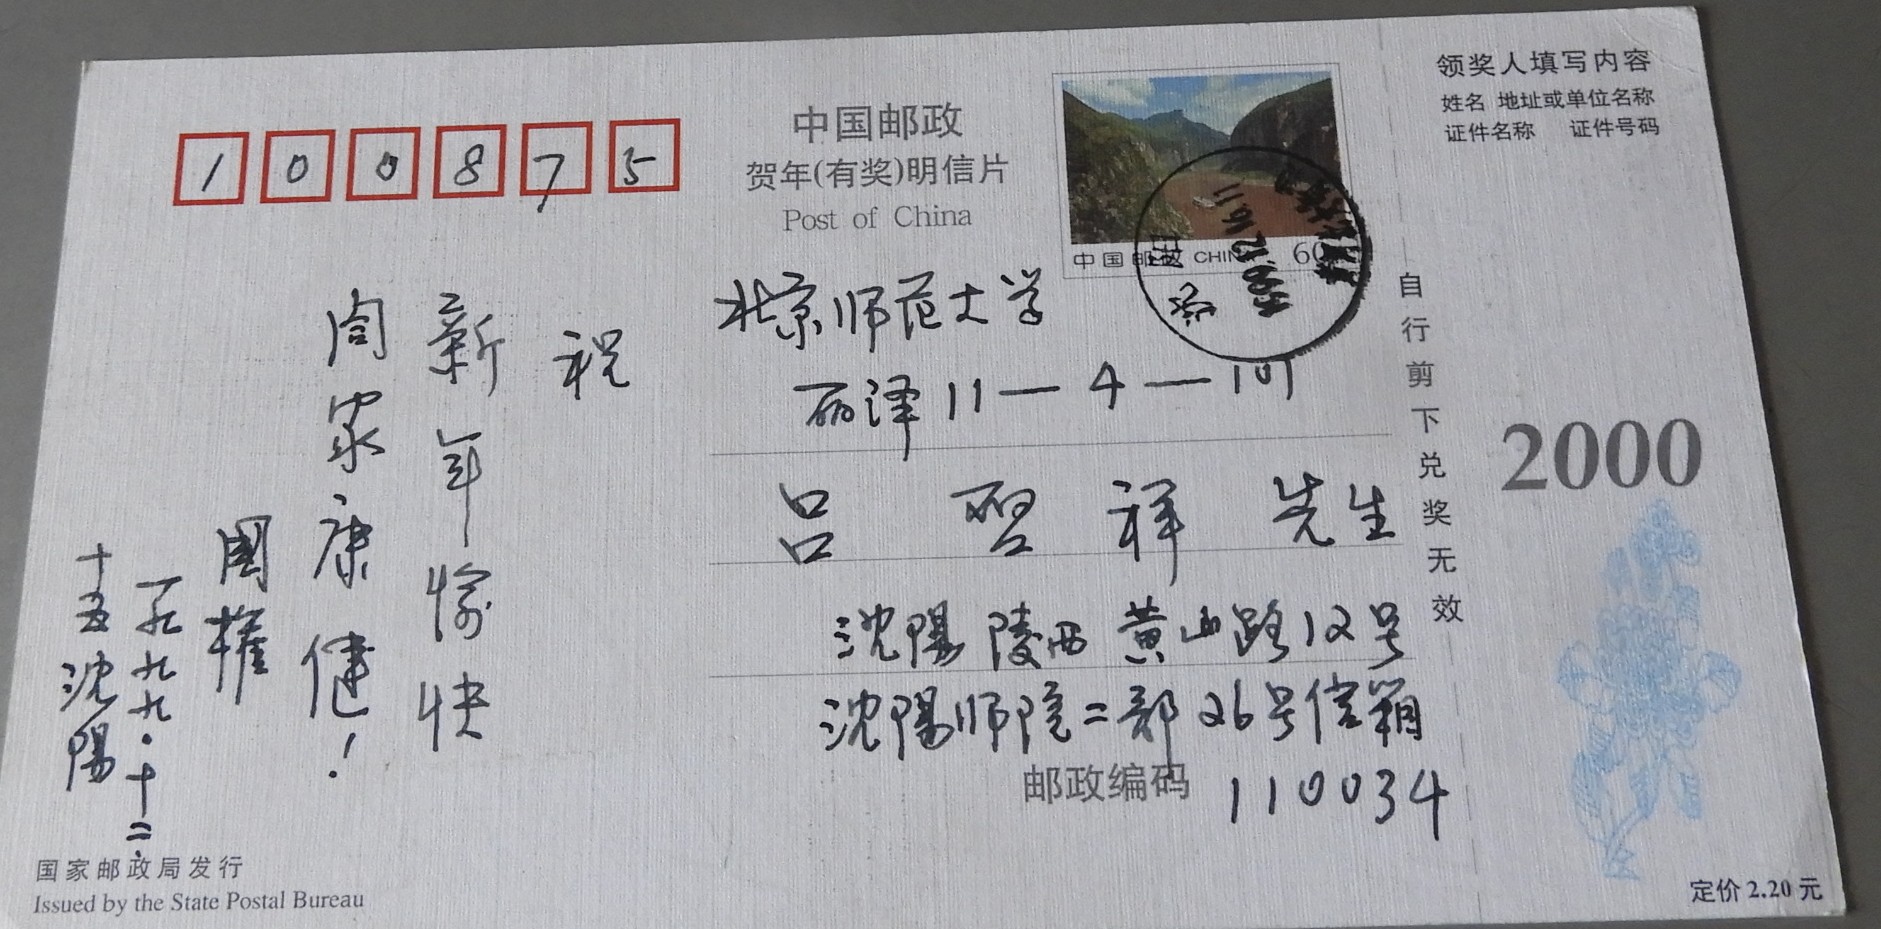 100875
中国邮政
贺年(有奖)明信片
Post of China
中国邮政 CHINA
北京师范大学
丽泽11—4—101
吕启祥先生
沈陽陵西黄山路12号
沈陽师院二部26号信箱
邮政编码 110034
祝
新年愉快
阖家康健!
國權
一九九九·十二·
十五沈陽
国家邮政局发行
Issued by the State Postal Bureau
领奖人填写内容
姓名 地址或单位名称
证件名称 证件号码
自行剪下兑奖无效
2000
定价 2.20 元